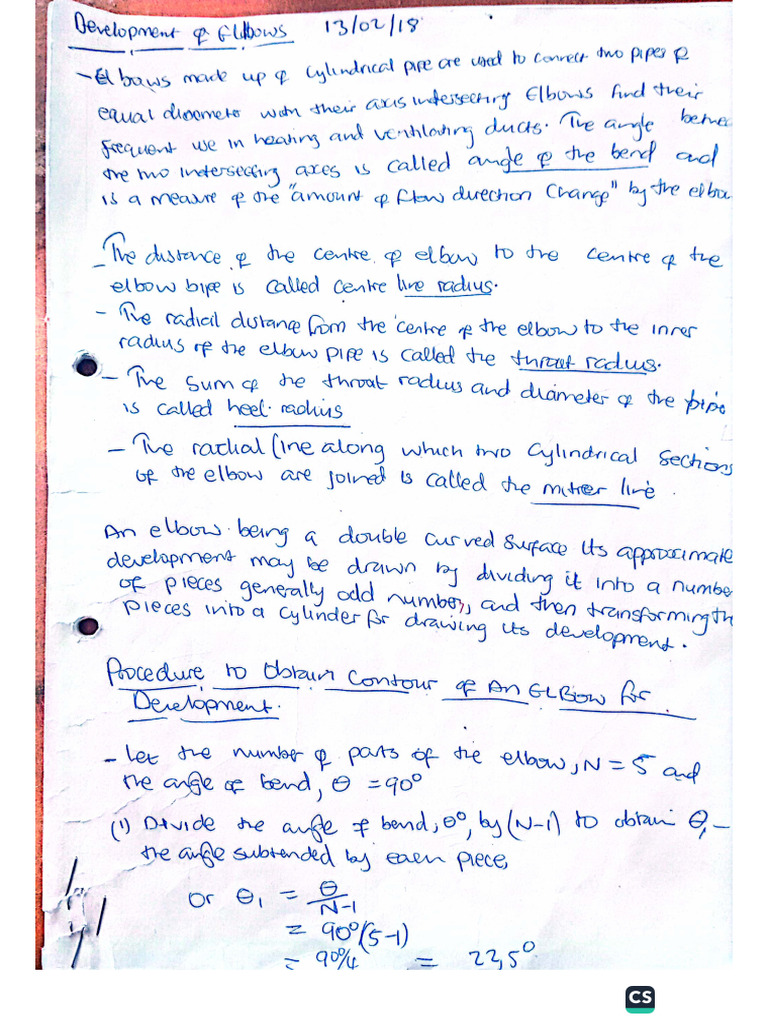 Development of Elbows 13/02/18
- Elbows made up of cylindrical pipe are used to connect two pipes of
equal diameter with their axis intersecting Elbows find their
frequent use in heating and ventilating ducts. The angle betwee
the two intersecting axes is called angle of the bend and
is a measure of the "amount of flow direction change" by the elbow
- The distance of the centre of elbow to the centre of the
elbow bipe is called centre line radius.
- The radial distance from the centre of the elbow to the inner
radius of the elbow pipe is called the throat radius.
- The sum of the throat radius and diameter of the pipe
is called heel radius
- The radial line along which two cylindrical sections
of the elbow are joined is called the mitter line.
An elbow being a double curved surface its approximate
development may be drawn by dividing it into a number
of pieces generally odd number, and then transforming th
pieces into a cylinder for drawing its development.
Procedure to Obtain Contour of An Elbow for
Development.
- Let the number of parts of the elbow, N = 5 and
the angle of bend, θ = 90°
(1) Divide the angle of bend, θ°, by (N-1) to obtain θ₁ -
the angle subtended by each piece,
or θ₁ = θ/N-1
= 90°/(5-1)
= 90°/4 = 22,5°
CS